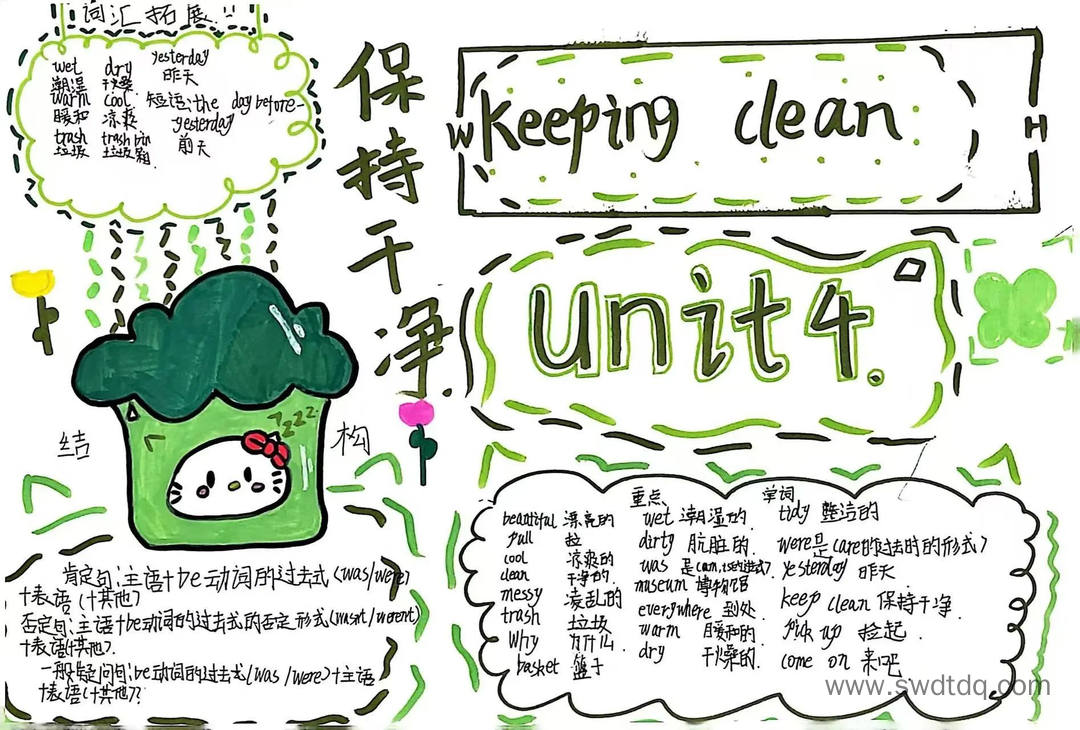 词汇拓展!!
wet dry yesterday
潮湿 干燥 昨天
warm cool 短语:the day before-
暖和 凉爽 yesterday
trash trash bin 前天
垃圾 垃圾箱
保持干净.
W Keeping clean H
Unit4.
zzz
结构
肯定句:主语+be动词的过去式(was/were)
+表语(+其他)
否定句:主语+be动词的过去式的否定形式(wasnt/werent)
+表语(+其他).
一般疑问句:be动词的过去式(was/were)+主语
+表语(+其他)?
重点 单词
beautiful 漂亮的 wet 潮湿的 tidy 整洁的
pull 拉 dirty 肮脏的 were是(are的过去时的形式)
cool 凉爽的 was 是 yesterday 昨天
clean 干净的 museum 博物馆 keep clean 保持干净
messy 凌乱的 everywhere 到处 pick up 捡起
trash 垃圾 warm 暖和的 come on 来吧
Why 为什么 dry 干燥的
basket 篮子
www.swdtdq.com